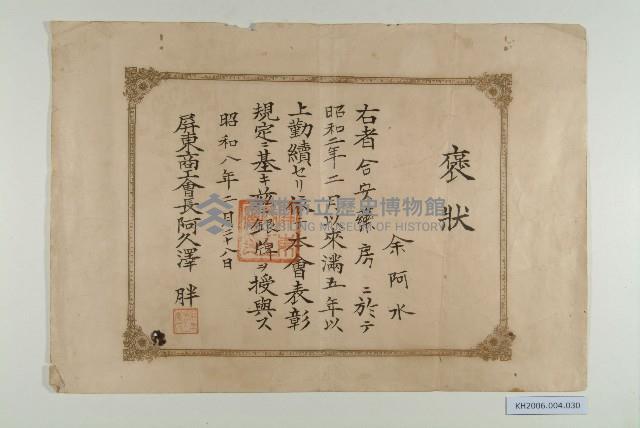 褒狀
余阿水
右者合安藥房ニ於テ
昭和二年二月以來滿五年以
上勤續セリ依テ本會表彰
規定ニ基キ銀牌ヲ授與ス
昭和八年二月二十八日
屏東商工會長阿久澤 胖
高雄市立歷史博物館
KAOHSIUNG MUSEUM OF HISTORY
KH2006.004.030